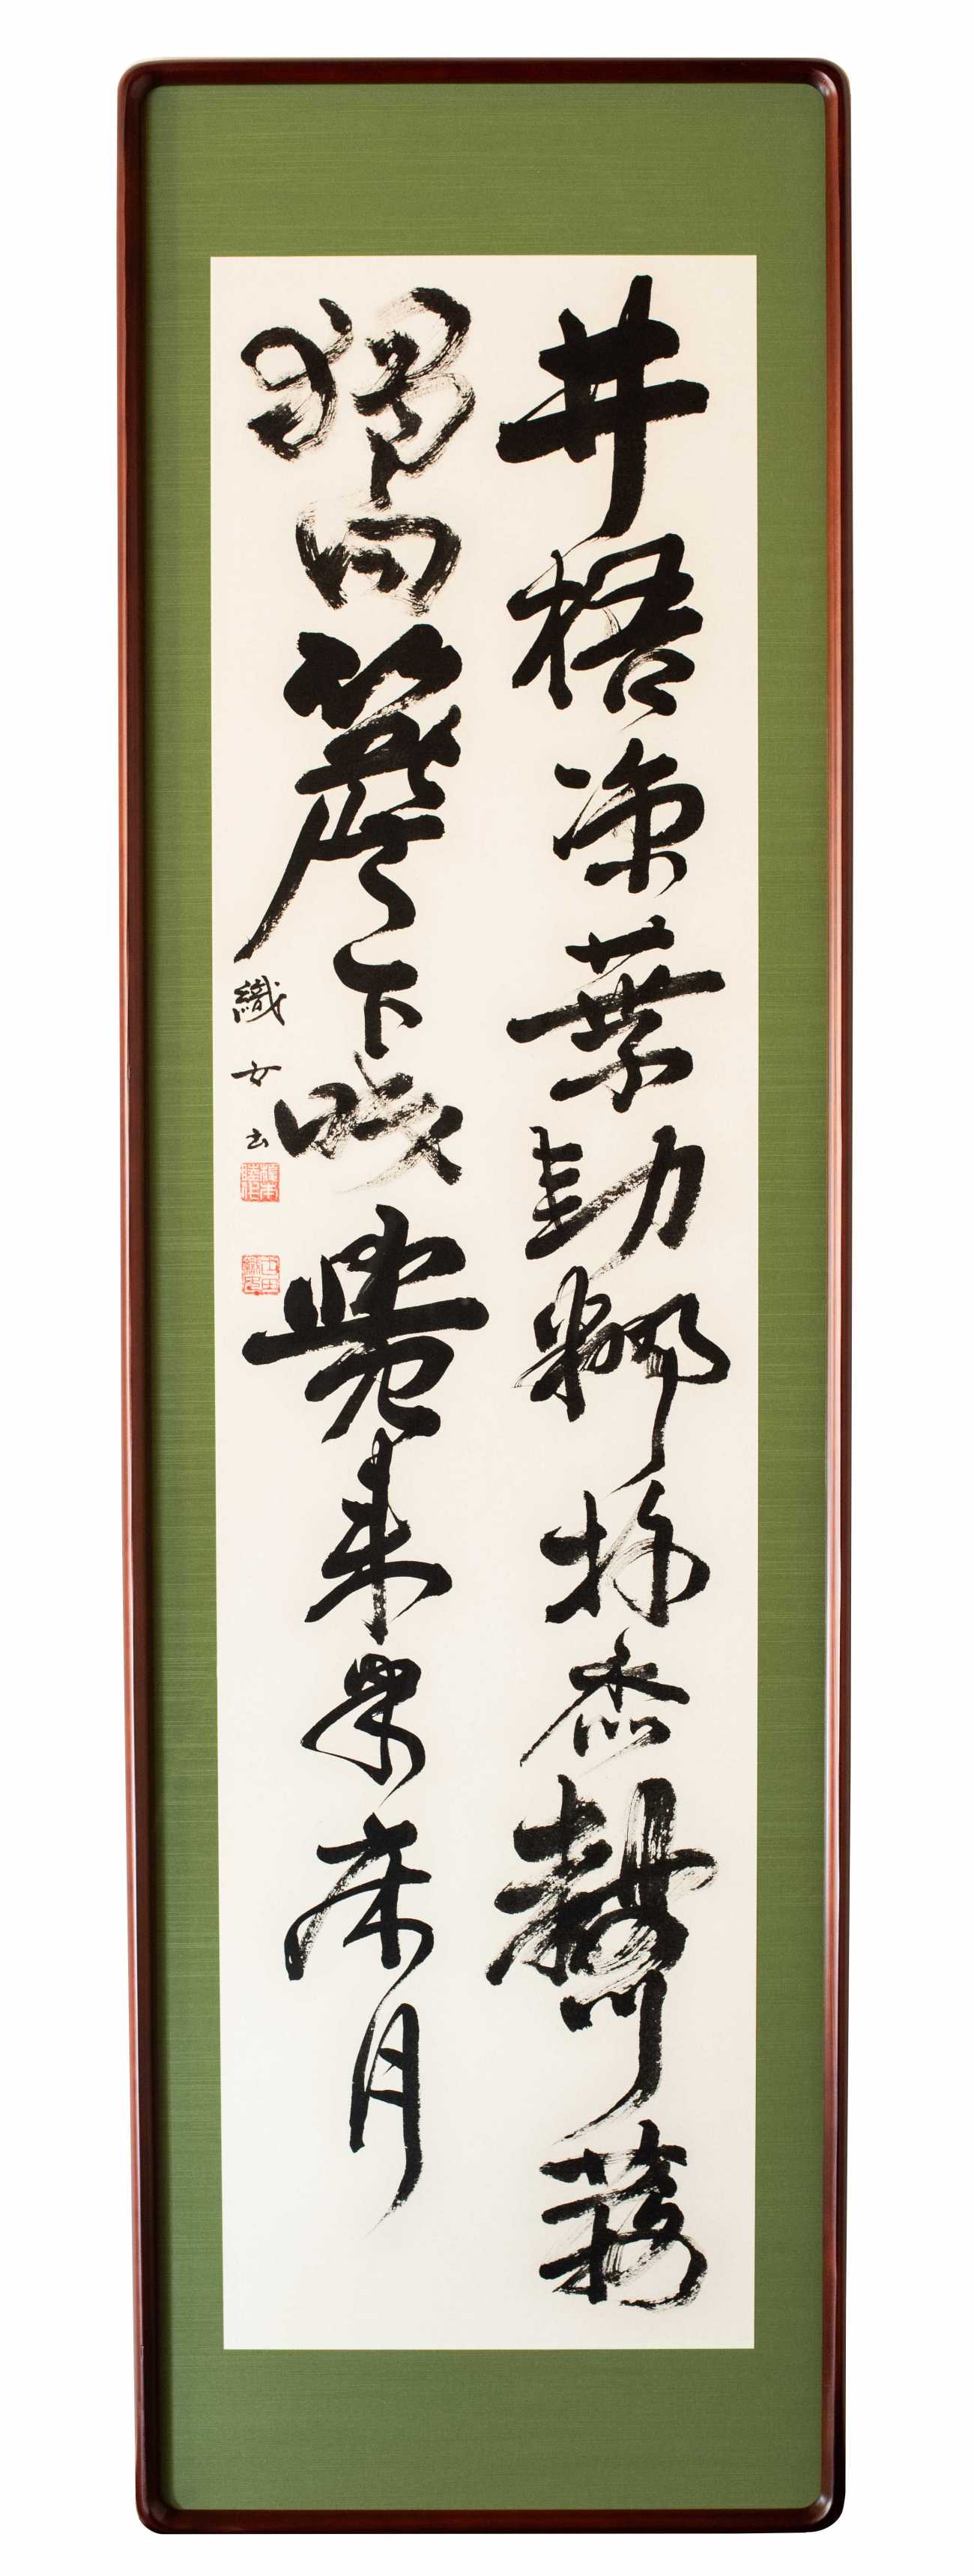 井梧凉葉動鄰杵秋聲發
獨向簷下眠覺來半床月
織女書